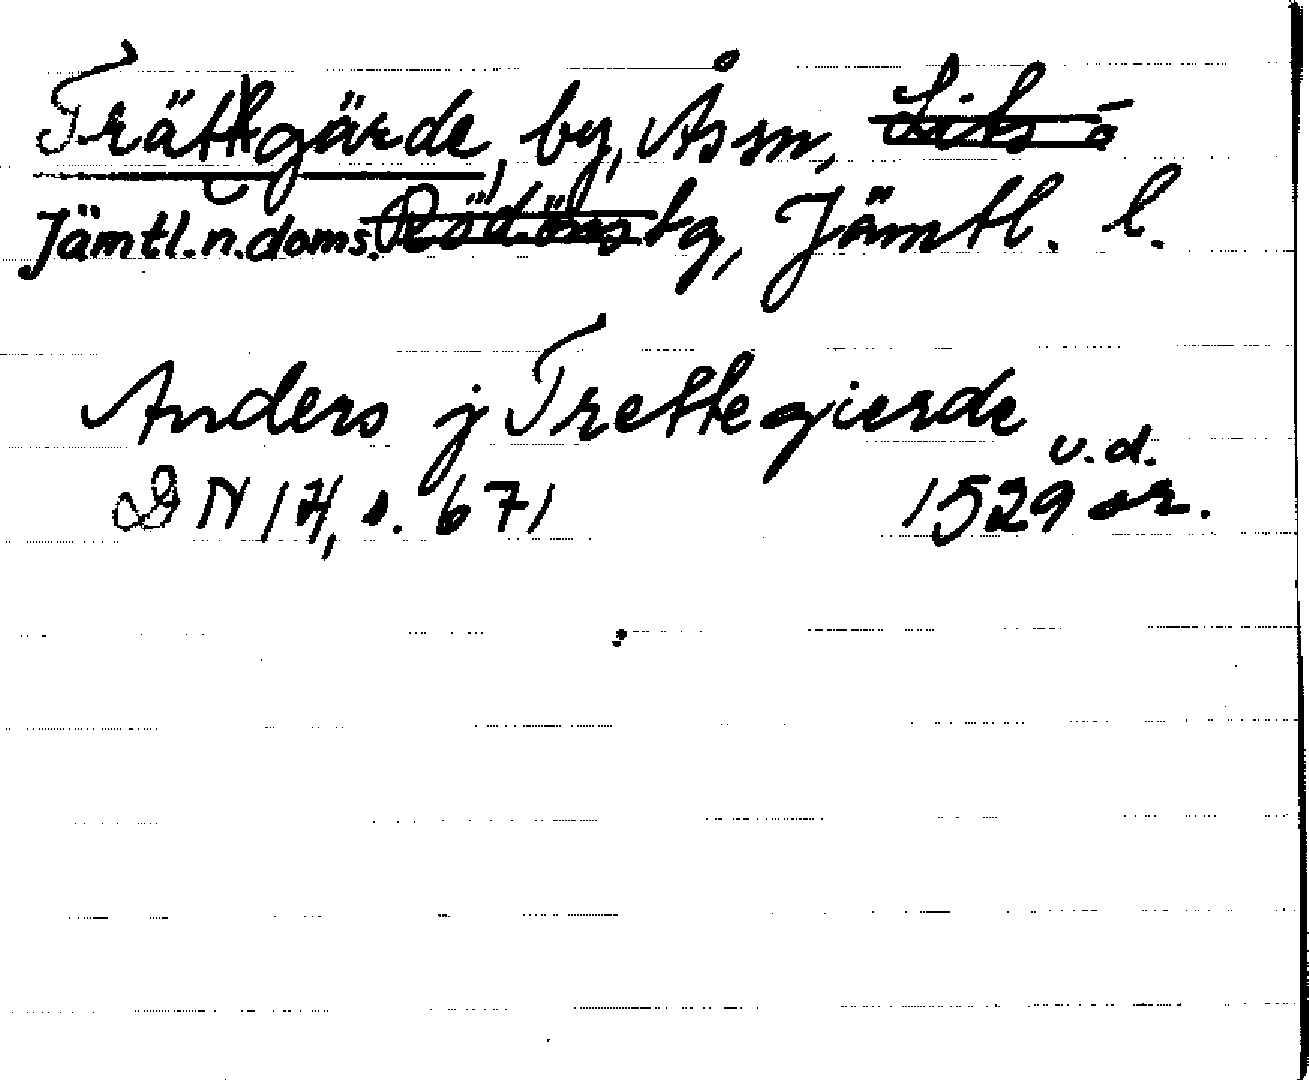 Trättgärde, by, Ås sn, Lits o
Jämtl.n.doms. Rödöns tg, Jämtl. l.
Anders j Trettegierde
v.d.
DN 14, s. 671 1529 or.